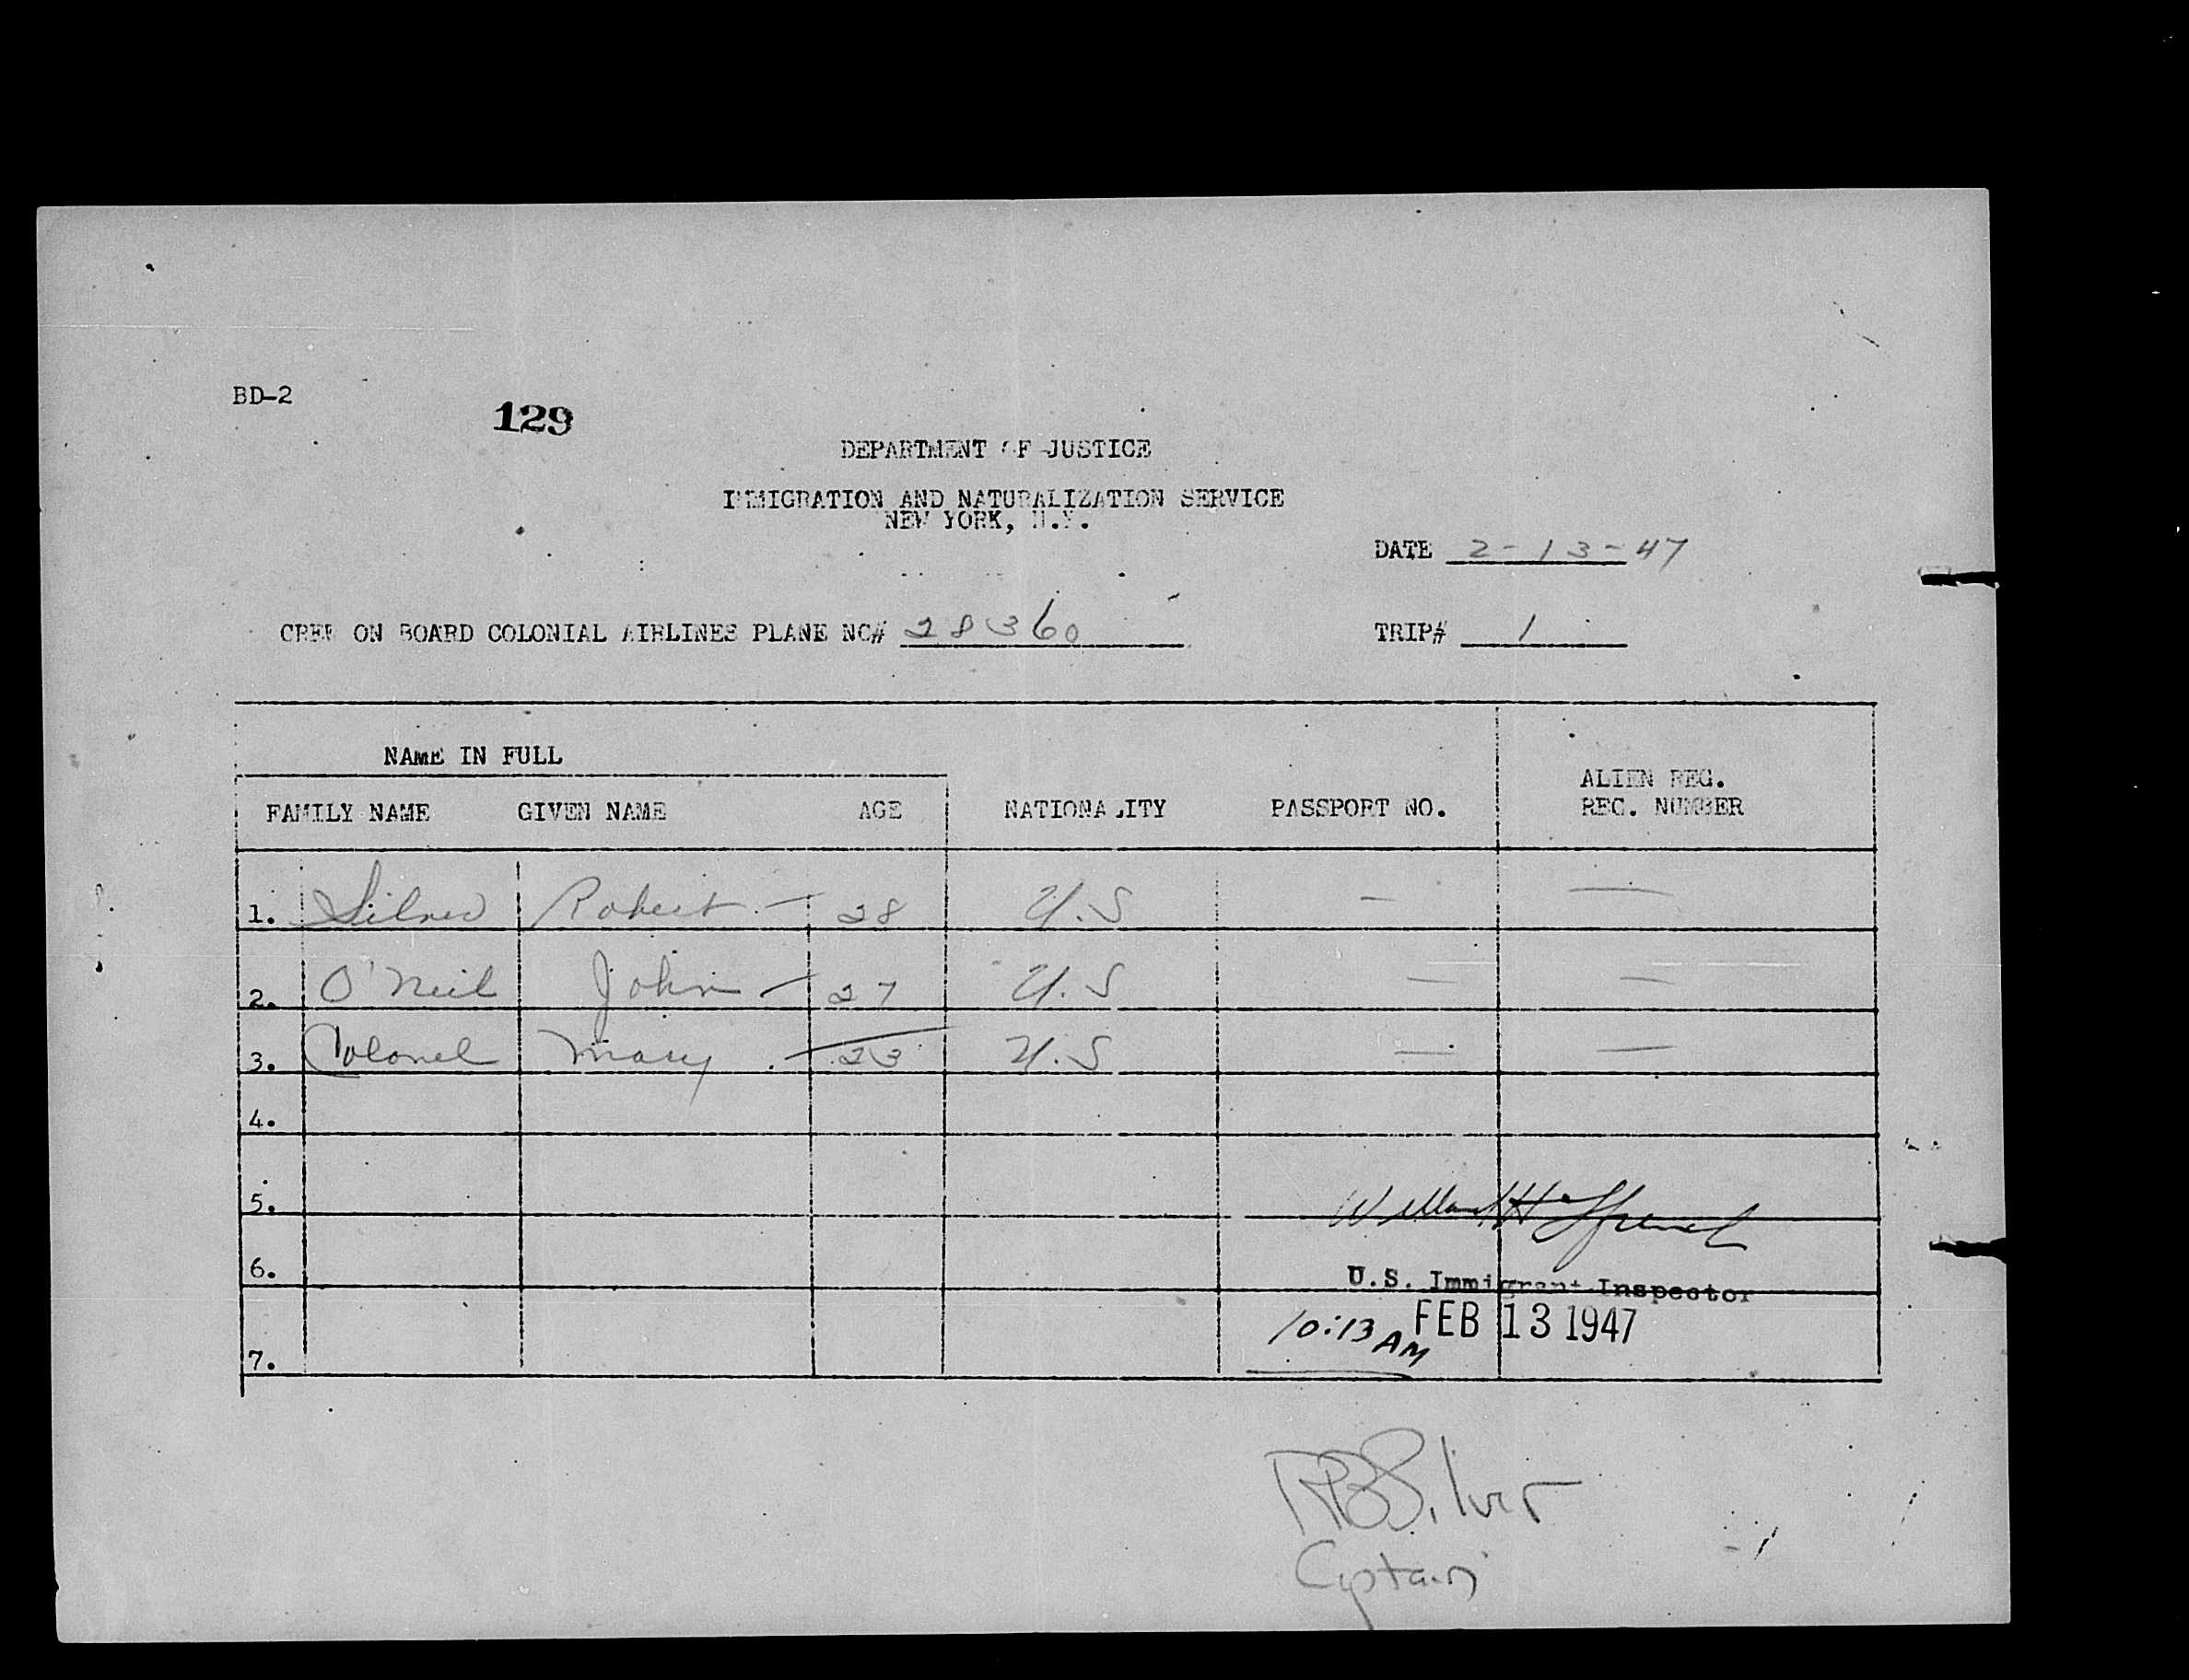 BD-2
129
DEPARTMENT OF JUSTICE
IMMIGRATION AND NATURALIZATION SERVICE
NEW YORK, N.Y.
DATE 2-13-47
CREW ON BOARD COLONIAL AIRLINES PLANE NC# 28360
TRIP# 1
NAME IN FULL
FAMILY NAME GIVEN NAME AGE NATIONALITY PASSPORT NO. ALIEN REG. REC. NUMBER
1. Silver Robert - 28 U.S - -
2. O'Neil John - 27 U.S - -
3. Colonel Mary - 23 U.S - -
4.
5.
Willard H
6.
U.S. Immigrant Inspector
10:13 AM FEB 13 1947
7.
RB Silver
Captain